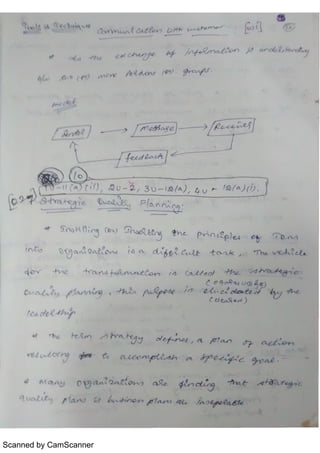 Tools & Technique
Communication with customer [Q31] 10
* It is the exchange of information & understanding
b/w two (or) more persons (or) groups.
Model
Sender → Message → Receiver
feedback
10
1U-11(A)(ii), 2U-2, 3U-12(A), 4U-12(A)(i).
Strategic Quality Planning:
* Instilling (or) the principles of TQM
into organization is a difficult task. The vehicle
for the transformation is called the strategic
quality planning, this purpose is elucidated by the
leadership
* The term strategy defines, a plan of action
to accomplish a specific goal.
* Many organizations are finding that strategic
quality plans & business plans are inseparable.
Scanned by CamScanner